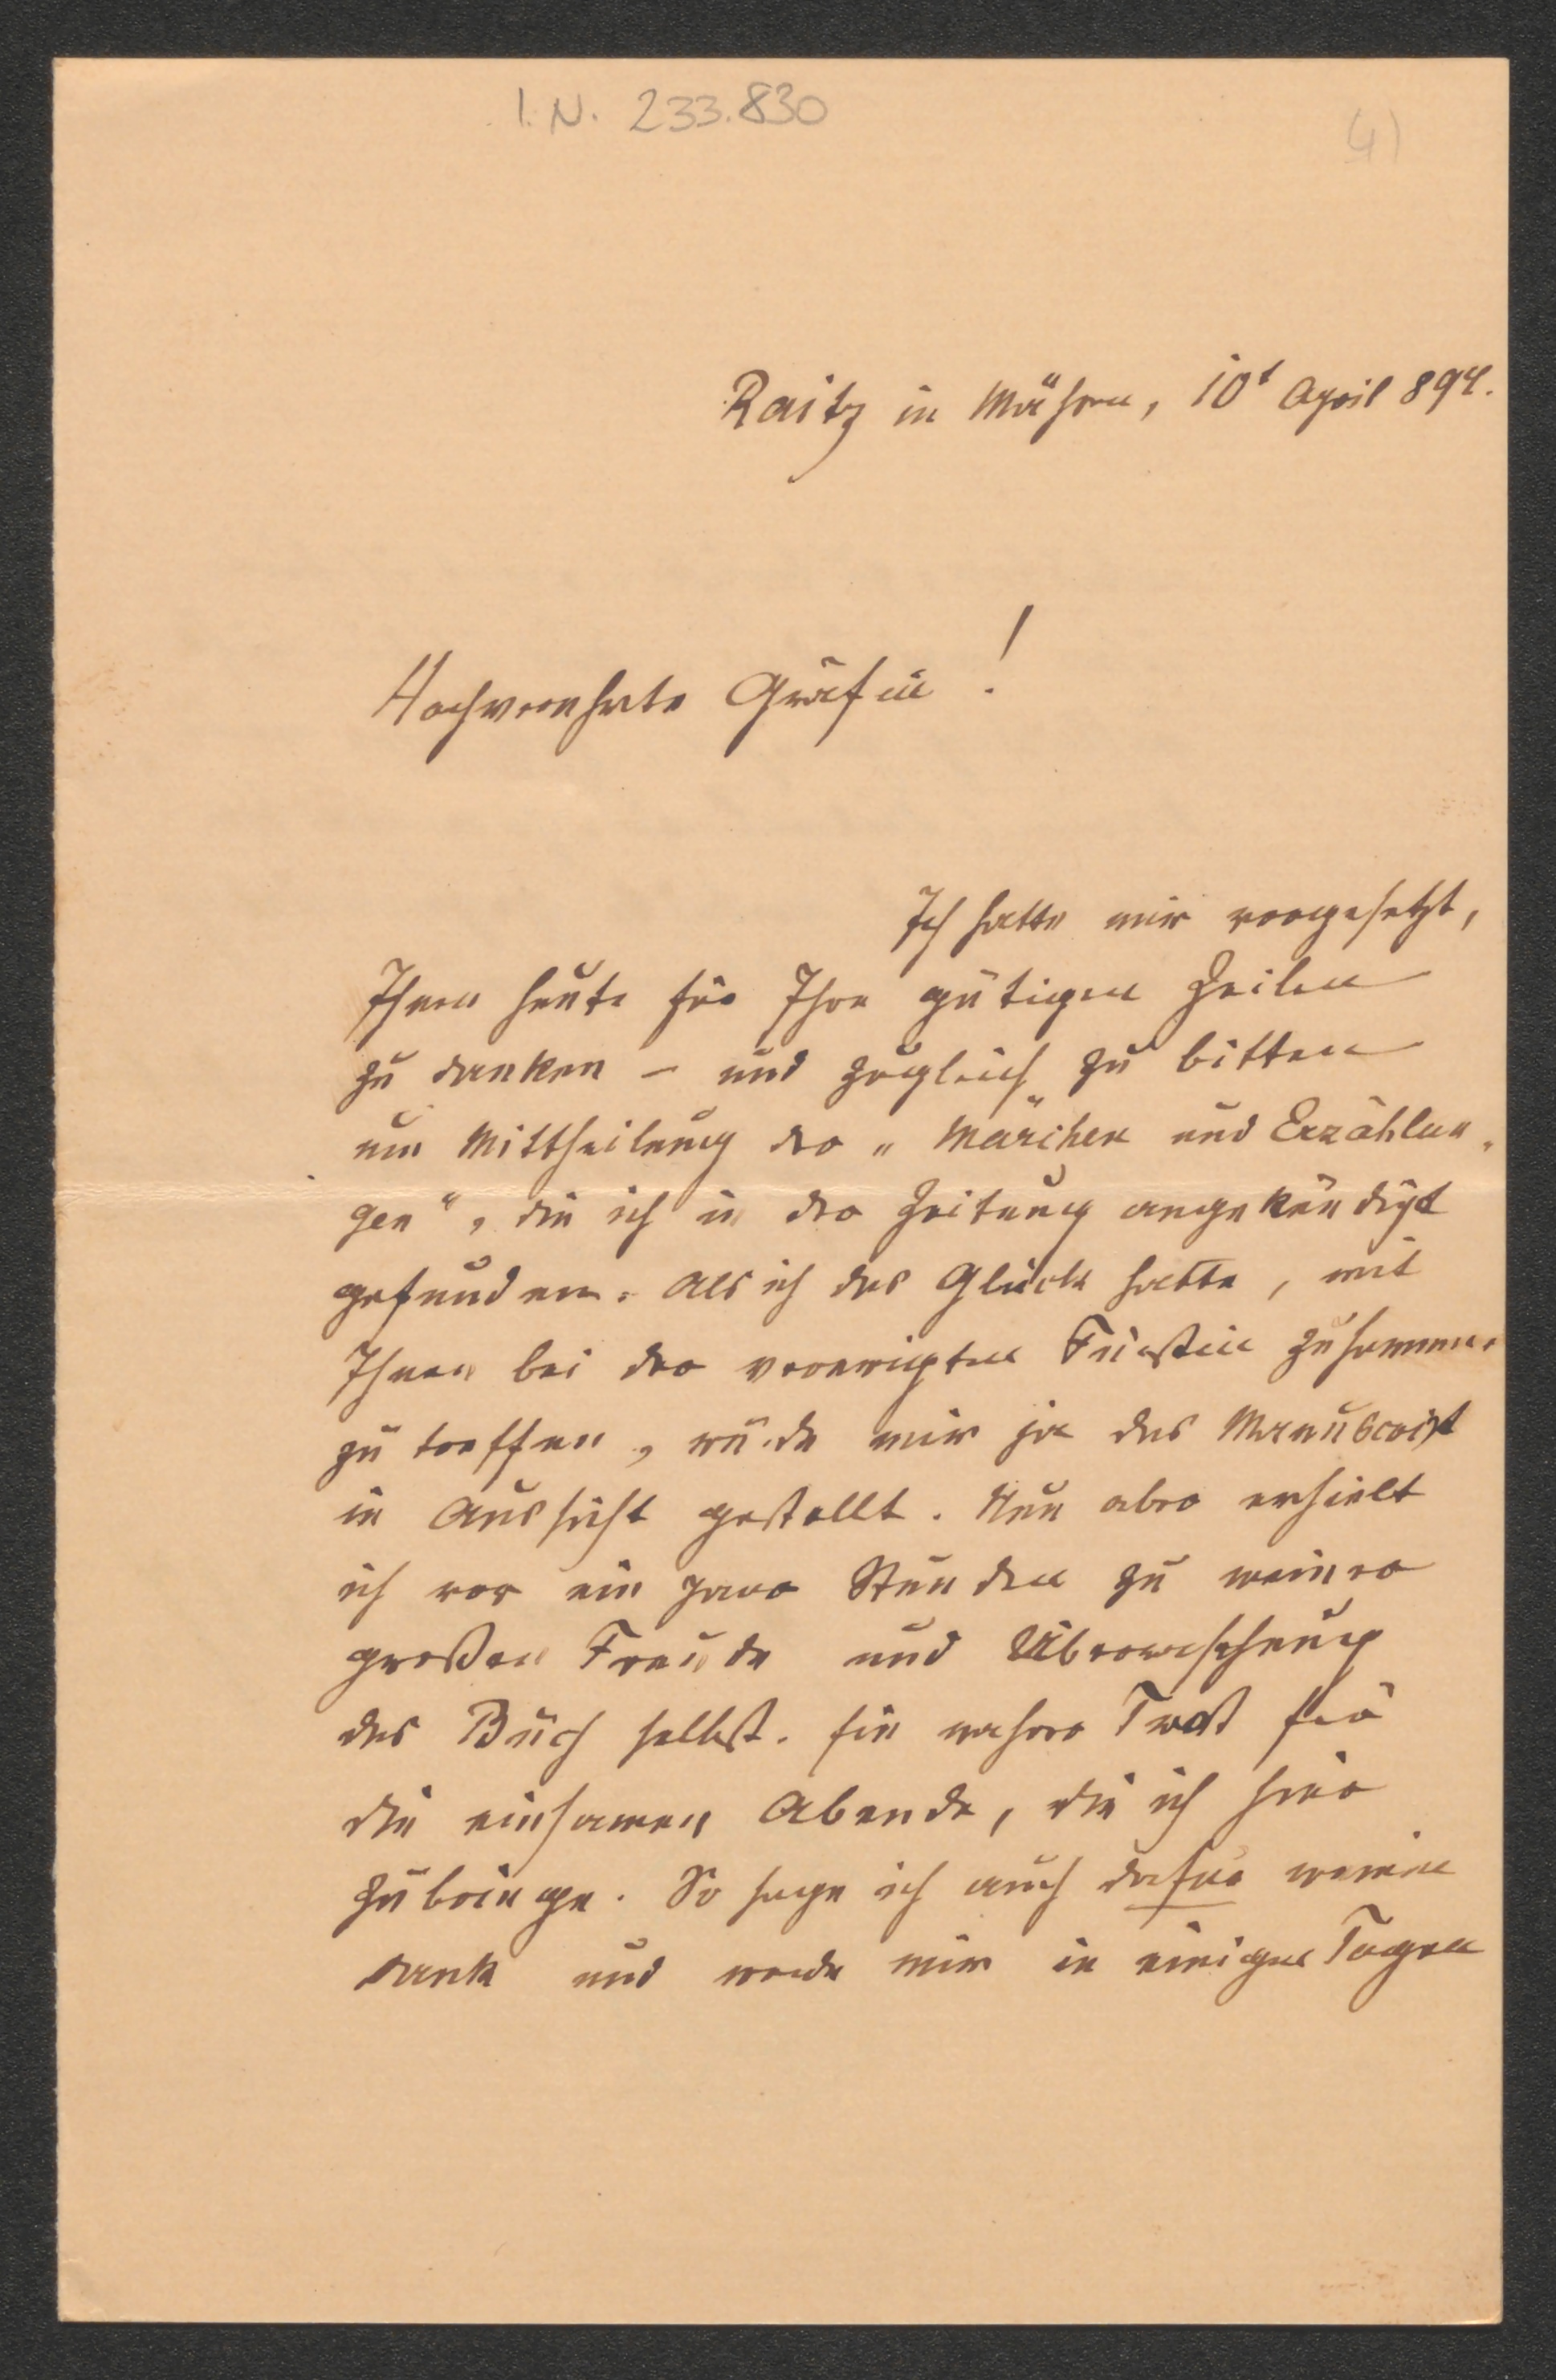 I. N. 233.830
4)
Raitz in Mähren, 10t April 894.
Hochverehrte Gräfin!
Ich hatte mir vorgesetzt,
Ihnen heute für Ihre gütigen Zeilen
zu danken – und zugleich zu bitten
um Mittheilung der „Märchen und Erzählun„
gen“, die ich in der Zeitung angekündigt
gefunden. Als ich das Glück hatte, mit
Ihnen bei der verewigten Fürstin zusammen
zu treffen, wurde mir ja das Manuscript
in Aussicht gestellt. Nun aber erhielt
ich vor ein paar Stunden zu meiner
großen Freude und Überraschung
das Buch selbst. Ein wahrer Trost für
die einsamen Abende, die ich hier
zubringe. So sage ich auch dafür meinen
Dank und werde mir in einigen Tagen